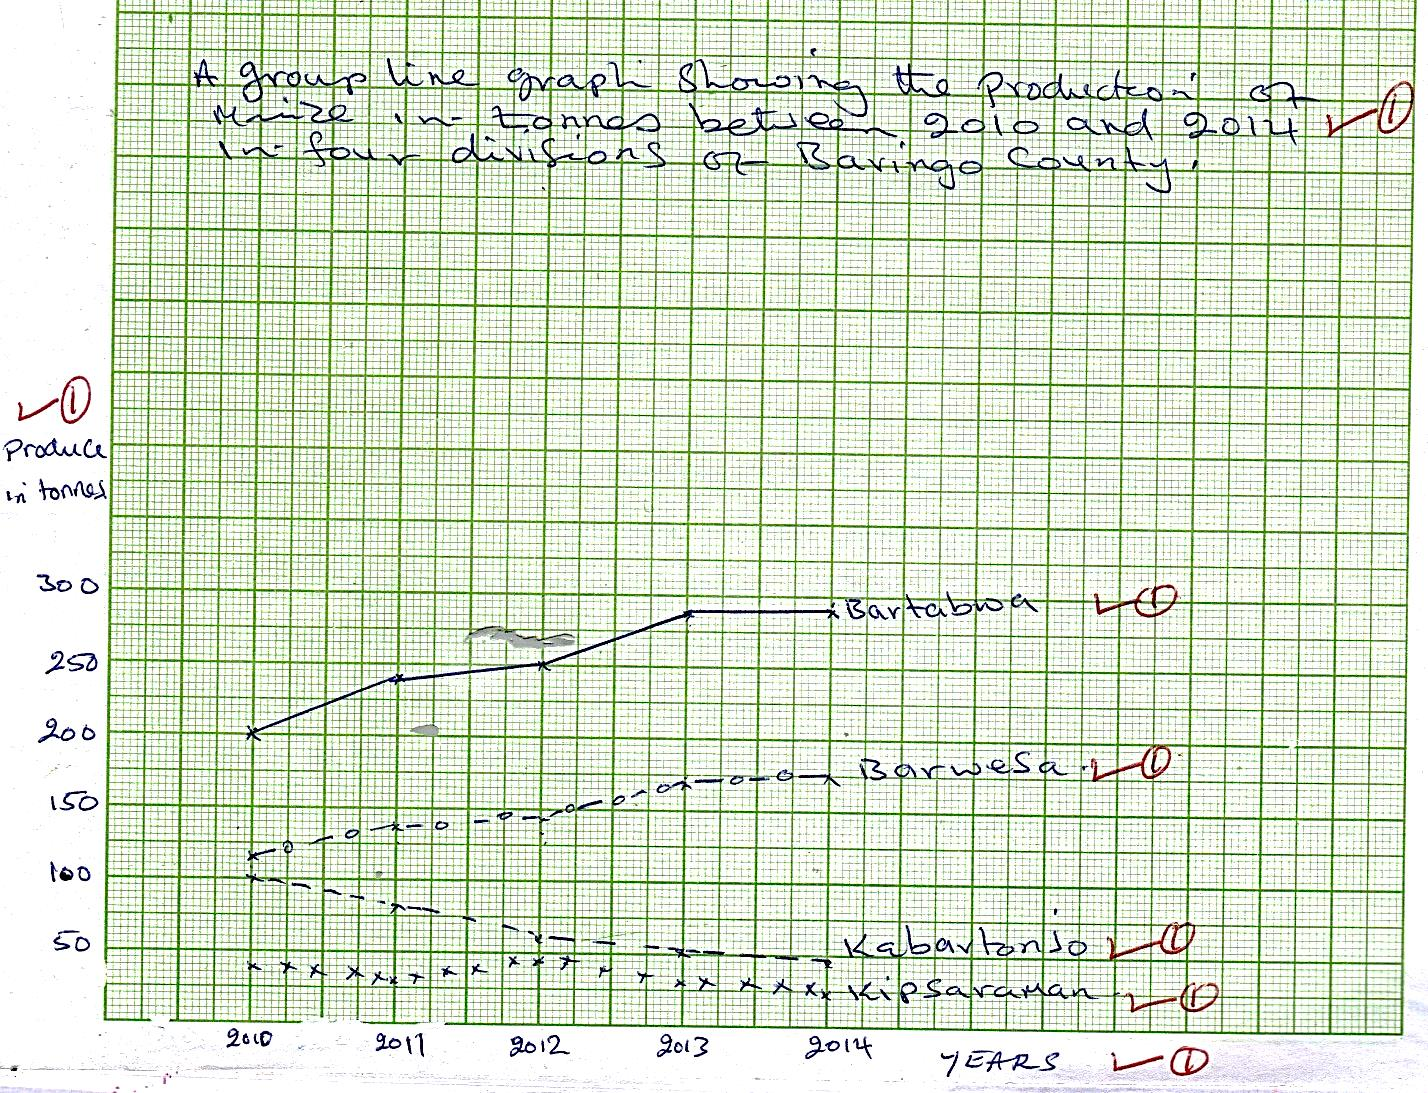 A group line graph showing the production of
Maize in tonnes between 2010 and 2014 ✓ ①
in four divisions of Baringo County.
✓ ①
Produce
in tonnes
300
Bartabwa ✓ ①
250
200
Barwesa ✓ ①
150
100
50
Kabartonjo ✓ ①
Kipsaraman ✓ ①
2010 2011 2012 2013 2014 YEARS ✓ ①